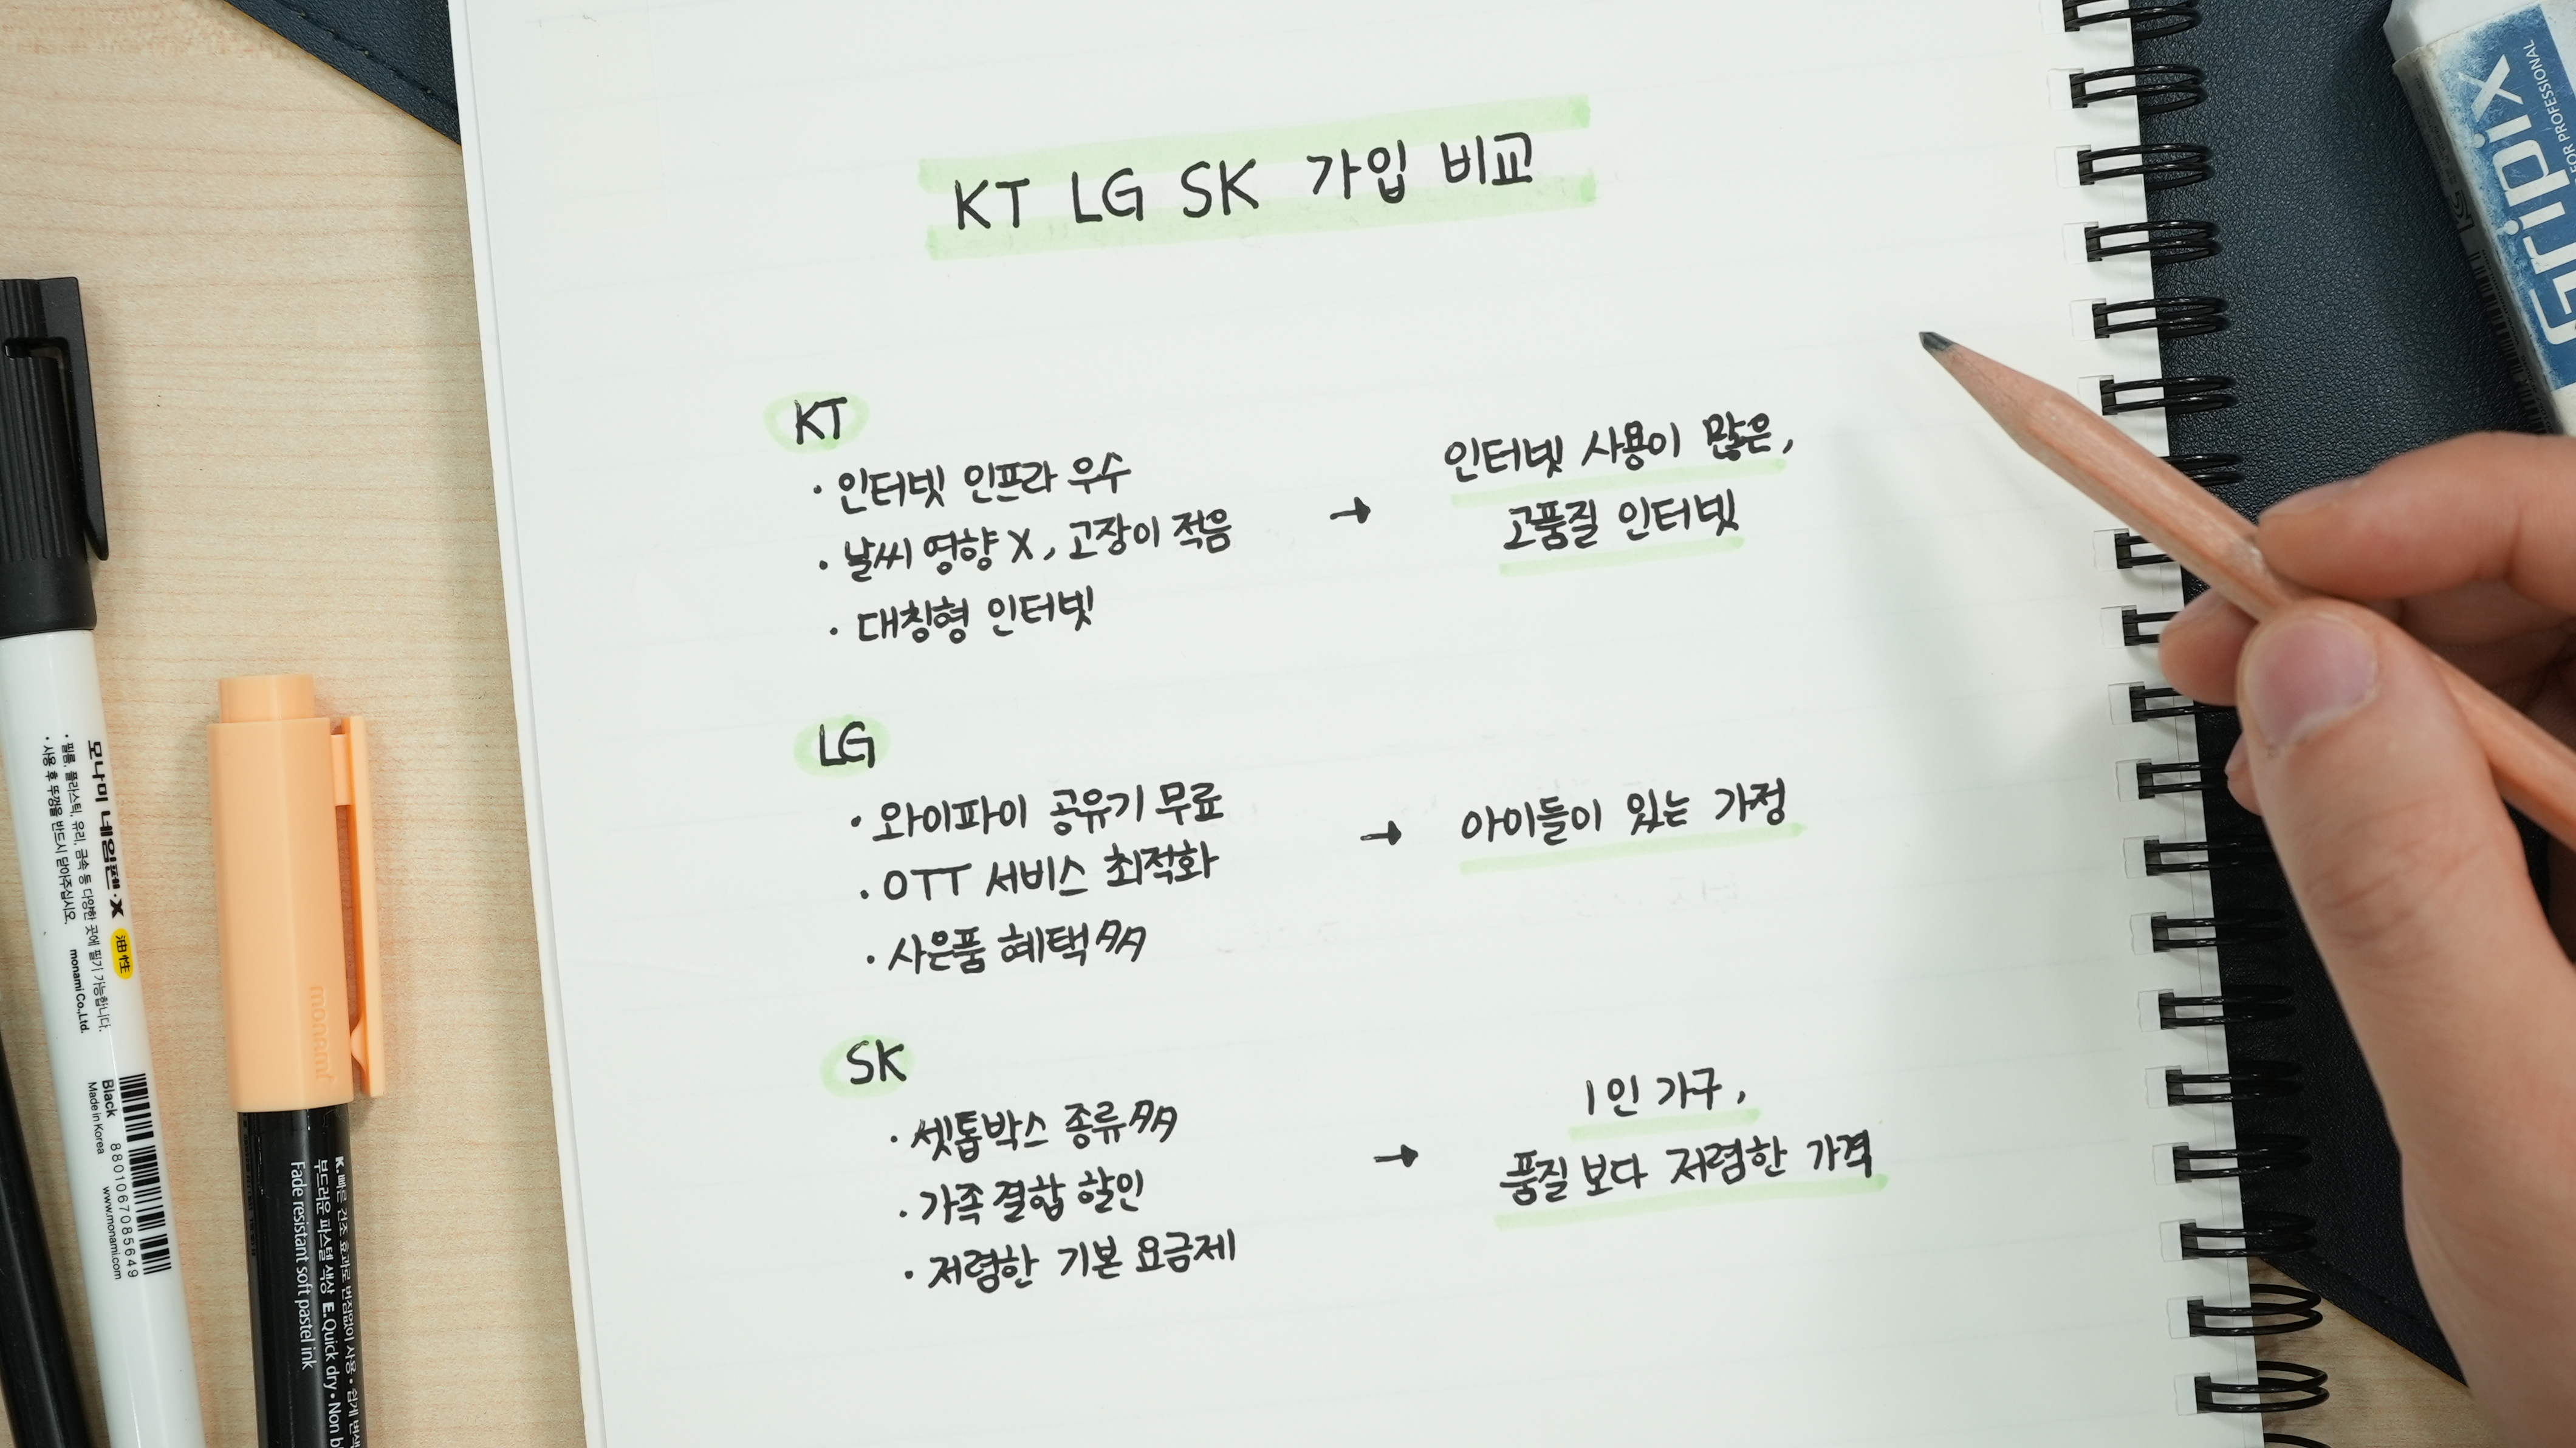 KT LG SK 가입 비교
KT
· 인터넷 인프라 우수
· 날씨 영향 X, 고장이 적음
· 대칭형 인터넷
→ 인터넷 사용이 많은,
고품질 인터넷
LG
· 와이파이 공유기 무료
· OTT 서비스 최적화
· 사은품 혜택 多
→ 아이들이 있는 가정
SK
· 셋톱박스 종류 多
· 가족 결합 할인
· 저렴한 기본 요금제
→ 1인 가구,
품질 보다 저렴한 가격
모나미 네임펜·X 油性
· 필름, 플라스틱, 유리, 금속 등 다양한 곳에 필기 가능합니다.
· 사용 후 뚜껑을 반드시 닫아주십시오.
monami Co.,Ltd.
Black
Made in Korea
8801067085649
www.monami.com
monami
K.빠른 건조 효과로 번짐없이 사용 · 쉽게 변색
부드러운 파스텔 색상 E.Quick dry · Non
Fade resistant soft pastel ink
Gripix
FOR PROFESSIONAL